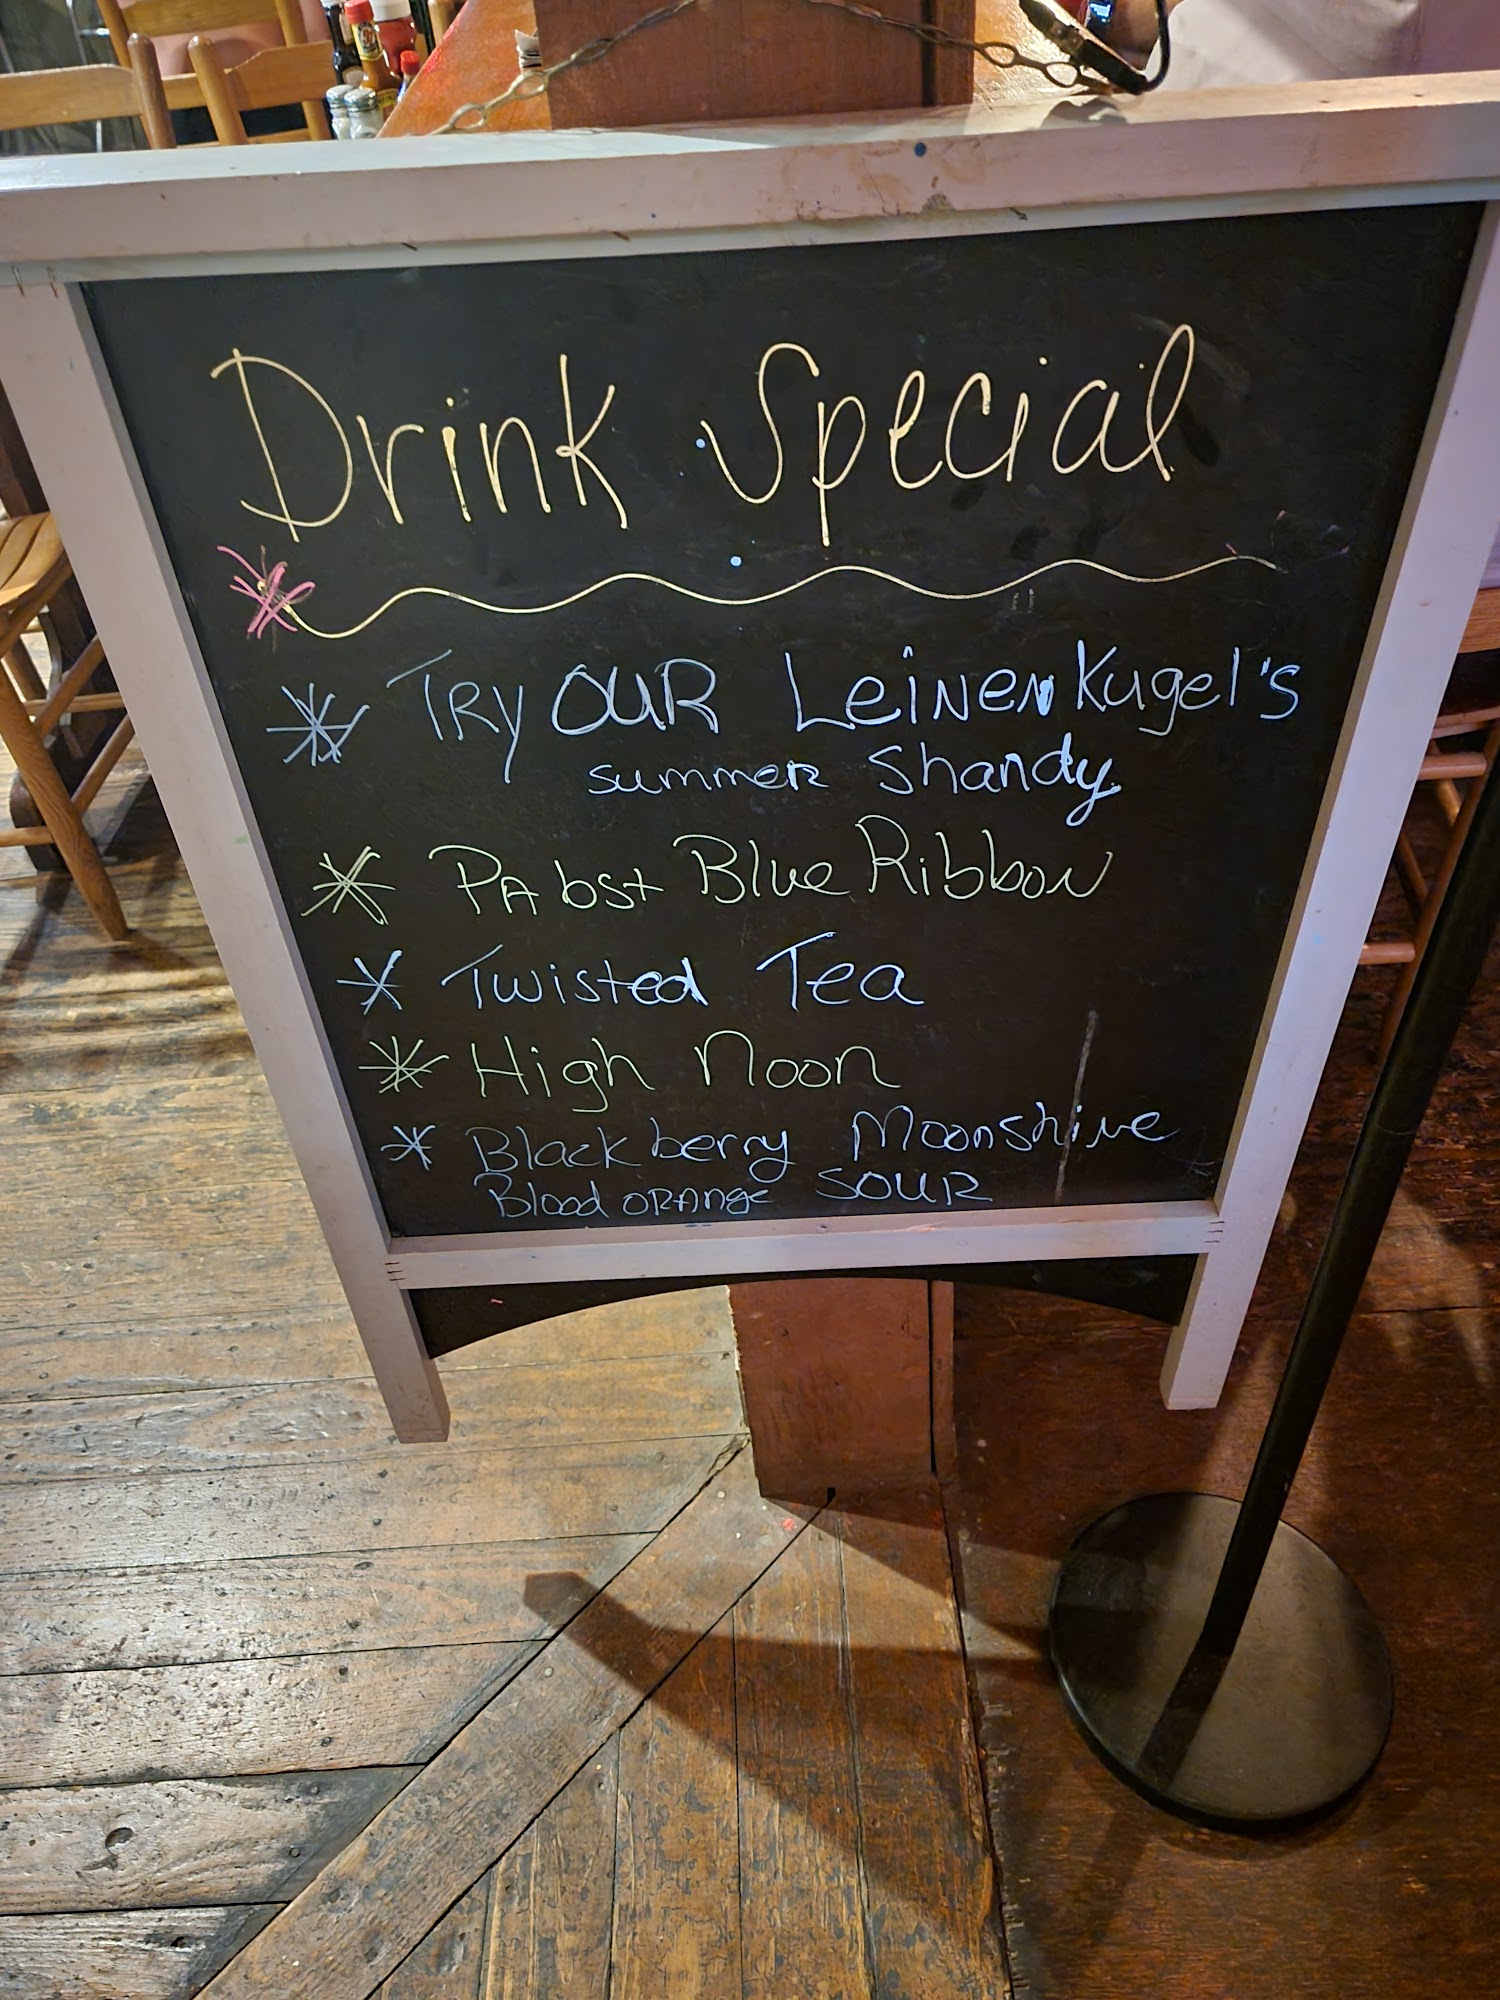 Drink Special
* Try OUR Leinenkugel's
summer Shandy
* Pabst Blue Ribbon
* Twisted Tea
* High Noon
* Blackberry Moonshine
Blood orange SOUR